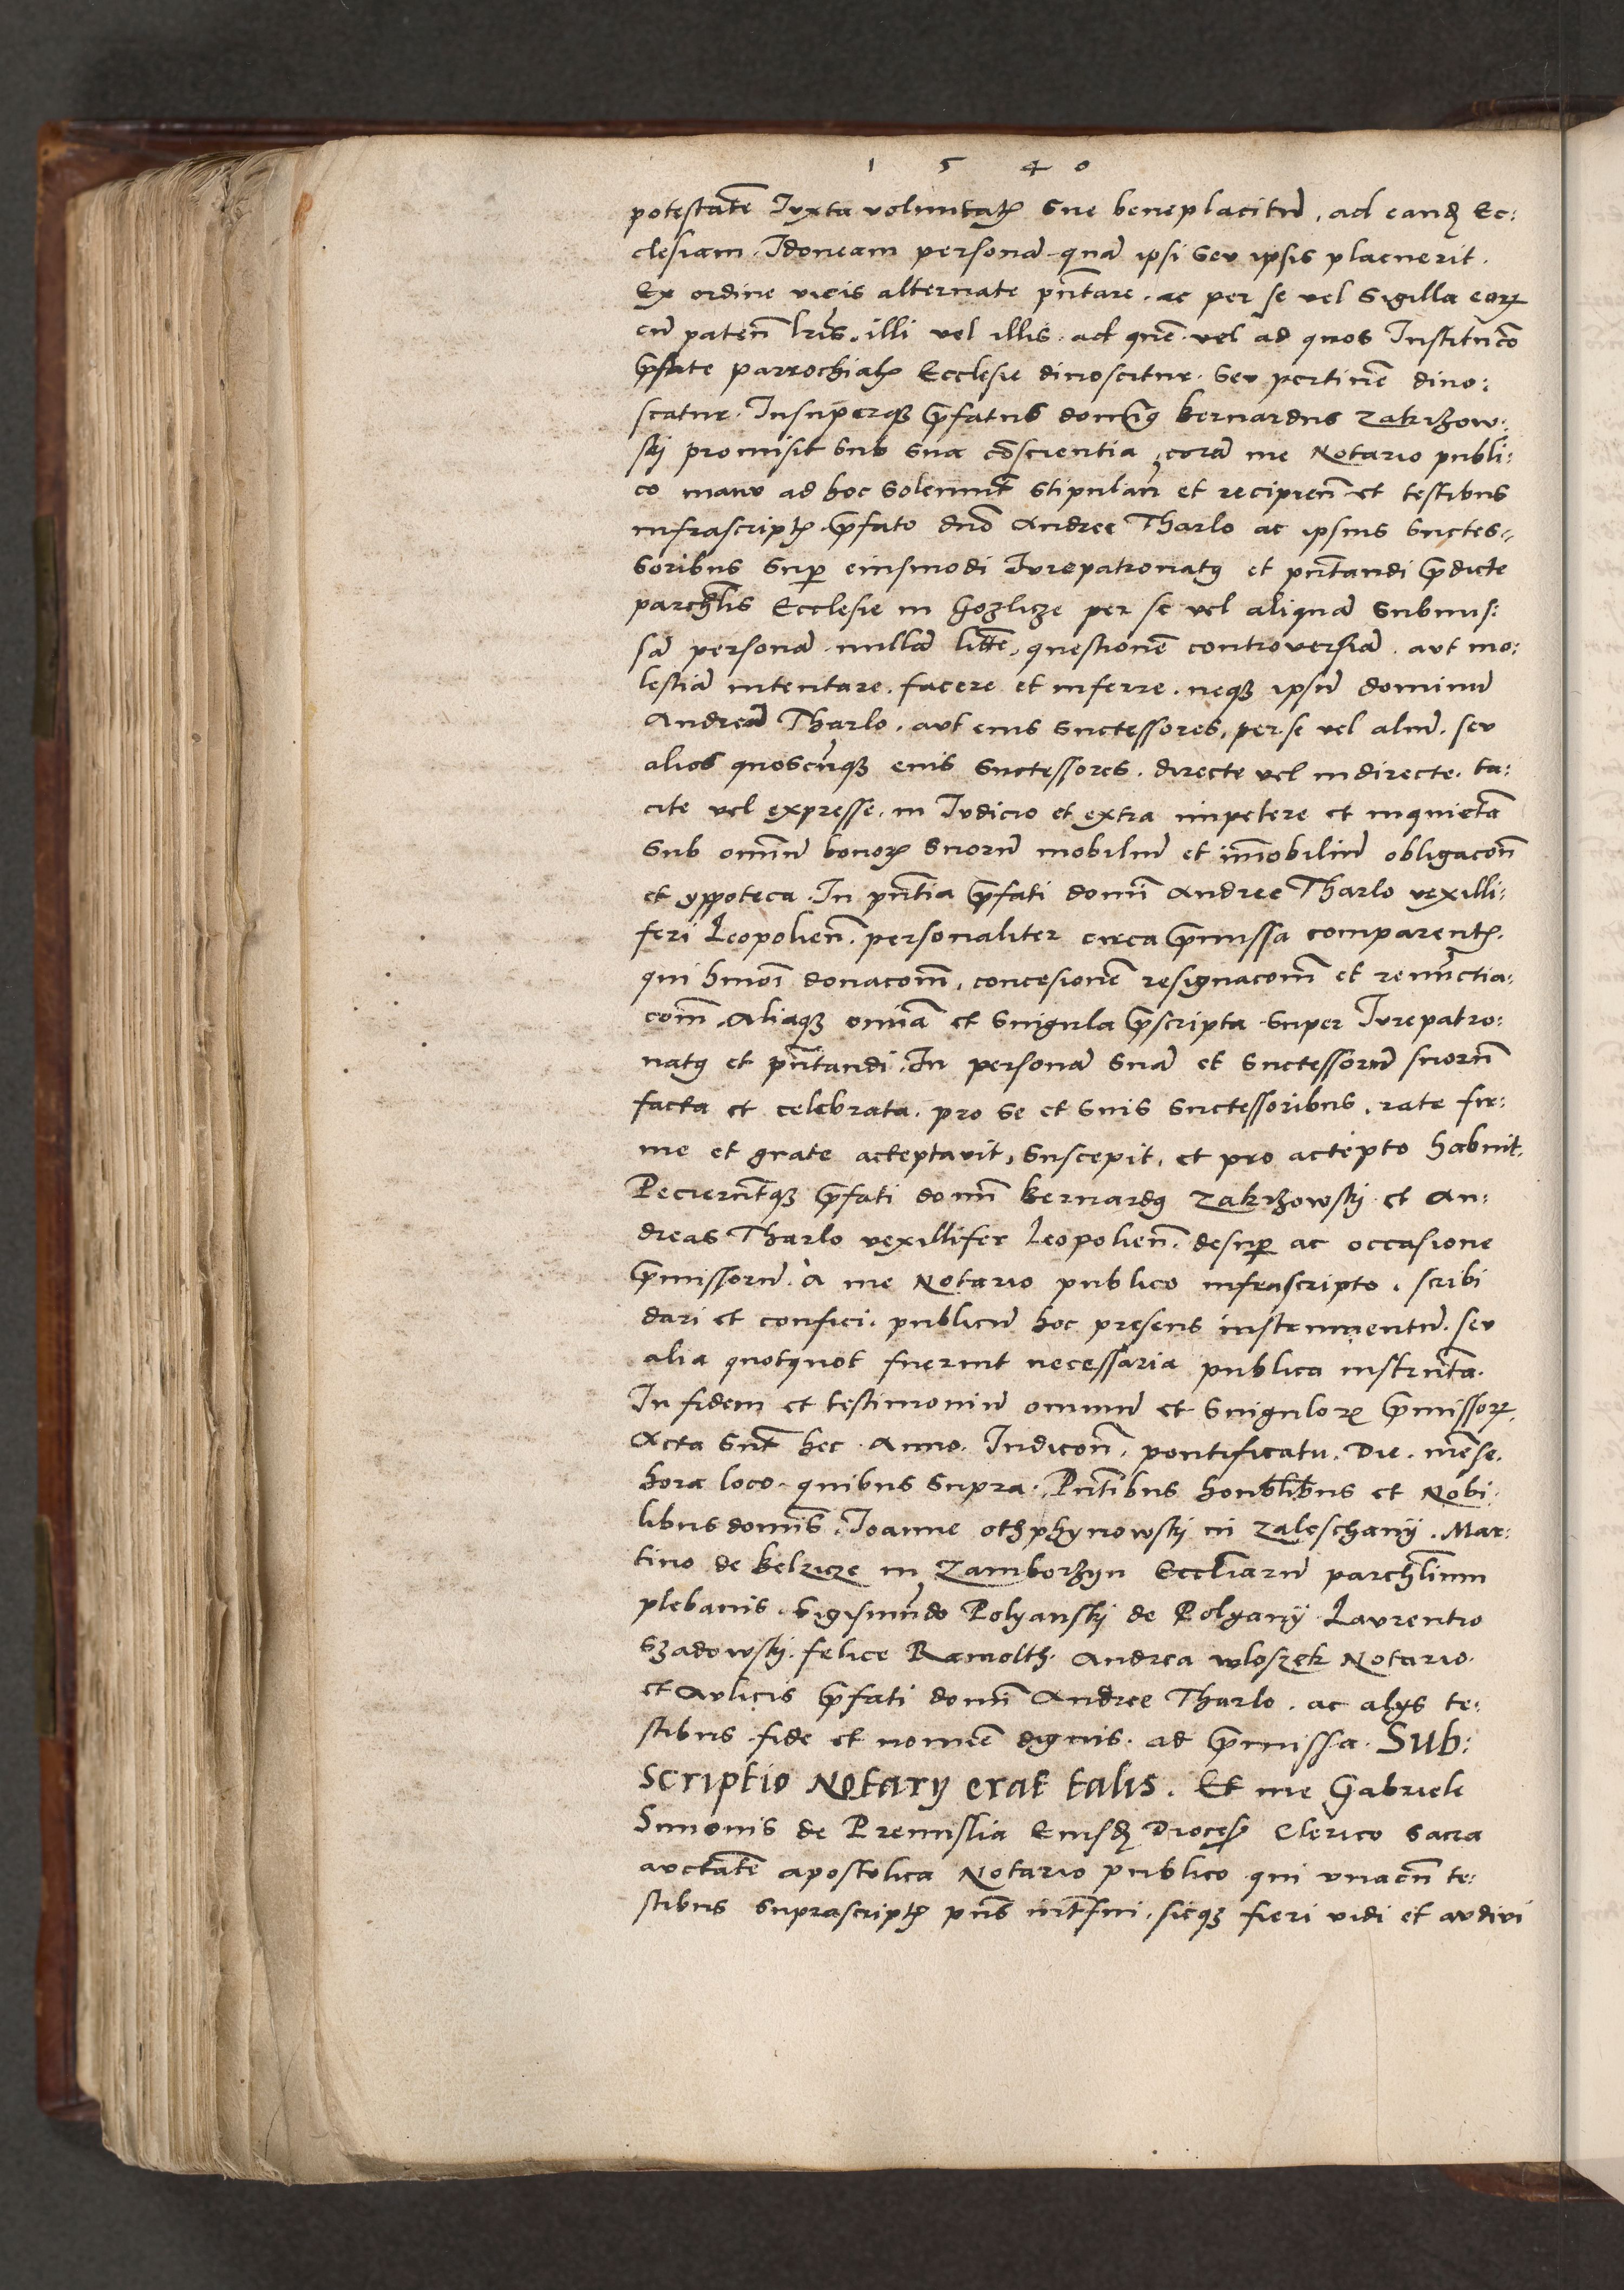 1 5 4 0
potestatē Iuxta voluntatꝫ sue beneplacitū, ad eandꝫ Ec:
clesiam. Idoneam personā quā ipsi seu ipsis placuerit.
Ex ordine vicis alternate pn̄tare. ac per se vel sigilla eorꝝ
cū paten̄ lr̄is. illi vel illis. ad quē vel ad quos Institucō
p̄fate parrochialꝫ Ecclesie dinoscitur. seu pertinē dino:
scatur. Insuperqꝫ p̄fatus Bernardus Zakrzow:
skj promisit sub sua cōscientia, corā me Notario publi:
co manu ad hoc solemnit̄ stipulan̄ et recipien̄ et testibus
infrascriptꝫ. p̄fato dnō Andree Tharlo ac ipsius succes:
soribus suꝑ eiusmodi Iurepatronatꝰ et pn̄tandi p̄dicte
parch̄lis Ecclesie in Gozlicze per se vel aliquā submis:
sā personā. nullā litē, questionē controversiā. aut mo:
lestiā intentare. facere et inferre. neqꝫ ipsū dominū
Andreā Tharlo. aut eius successores, per se vel aliū. seu
alios quoscūqꝫ eius successores. directe vel indirecte. ta:
cite vel expresse. in Iudicio et extra impetere et inquietā
sub omniū bonorꝝ suorū mobiliū et im̄obiliū obligacōn̄
et yppoteca. In pn̄tia p̄fati domī Andree Tharlo vexilli:
feri Leopolien̄. personaliter circa p̄missa comparentꝫ.
qui hmōi donacōm̄, concesionē resignacōm̄ et renūctia:
cōm̄. Aliaqꝫ omnia et singula p̄scripta super Iurepatro:
natꝰ et pn̄tandi. In personā suā et successorū suorū
facta et celebrata. pro se et suis successoribus, rate fir:
me et grate acceptavit, suscepit, et pro accepto habuit.
Pecierūtqꝫ p̄fati domī Bernardꝰ Zakrzowskj et An:
dreas Tharlo vexillifer Leopolien̄. desuꝑ ac occasione
p̄missorū. A me Notario publico infrascripto. scribi
dari et confici. publicū hoc presens instrumentū. seu
alia quotquot fuerint necessaria publica instrūta.
In fidem et testimoniū omniū et singulorꝝ p̄missorꝝ.
Acta sūt hec. Anno. Indicōn̄. pontificatu. Die. mēse.
hora loco. quibus supra. Pn̄tibus honblībus et Nobi:
libus domīs. Ioanne othphynowskj in Zaleschany. Mar:
tino de Kelzicze in Zamborzyn Eccl̄iarū parch̄lium
plebanis. Sigismūdo Polyanskj de Polyany Laurentio
Szadowskj. felice Ramolth. Andrea wloszek Notario
et Aulicis p̄fati domī Andree Tharlo. ac alys te:
stibus fide et nomīe dignis. ad p̄missa. Sub:
scriptio Notary erat talis. Et me Gabriele
Simonis de Premislia Eiusdꝫ Dioces̄ Clerico sacra
auctatē apostolica Notario publico qui unacū te:
stibus suprascriptꝫ pn̄s int̄fui. sicqꝫ fieri vidi et audivi